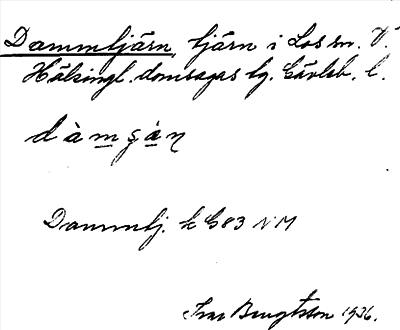 Dammtjärn, tjärn i Los sn. V.
Hälsingl. domsagas tg. Gävleb. l.
dàmʂàn
Dammtj. k G83 NM
Ivar Bengtsson 1936.